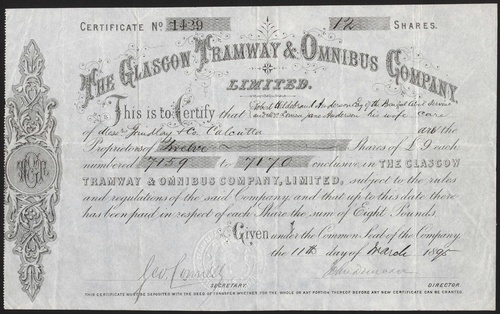 CERTIFICATE No 1429 12 SHARES.
THE GLASGOW TRAMWAY & OMNIBUS COMPANY,
LIMITED.
This is to Certify that Robert Hildebrand Anderson Esq of the Bengal Civil Service
and Mrs Louisa Jane Anderson his wife care
of Messrs Grindlay & Co Calcutta are the
Proprietors of Twelve Shares of £9 each
numbered 7159 to 7170 inclusive, in THE GLASGOW
TRAMWAY & OMNIBUS COMPANY, LIMITED, subject to the rules
and regulations of the said Company, and that up to this date there
has been paid in respect of each Share the sum of Eight Pounds.
Given under the Common Seal of the Company,
the 11th day of March 1895
SECRETARY. DIRECTOR.
THIS CERTIFICATE MUST BE DEPOSITED WITH THE DEED OF TRANSFER WHETHER FOR THE WHOLE OR ANY PORTION THEREOF BEFORE ANY NEW CERTIFICATE CAN BE GRANTED.